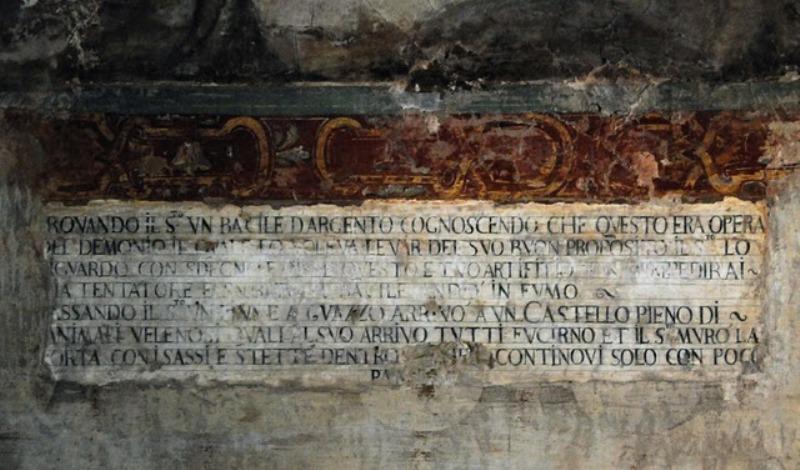 ROVANDO IL S.TO VN BACILE D'ARGENTO COGNOSCENDO CHE QVESTO ERA OPERA
DEL DEMONIO IL QVALE LO VOLEVA LEVAR DEL SVO BVON PROPOSITO IL S.TO LO
GVARDO CON QVESTO E TVO ARTIFITIO MPEDIRAI ~
IA TENTATORE BACILE ANDO IN FVMO ~
ASSANDO IL S.TO VN A GVAZZO ARRIVO A VN CASTELLO PIENO DI ~
ANIMALI VELENOSI QVALI AL SVO ARRIVO TVTTI FVCIRNO ET IL S.TO MVRO LA
ORTA CON I SASSI E STETTE DENTRO CONTINOVI SOLO CON POCO
PA